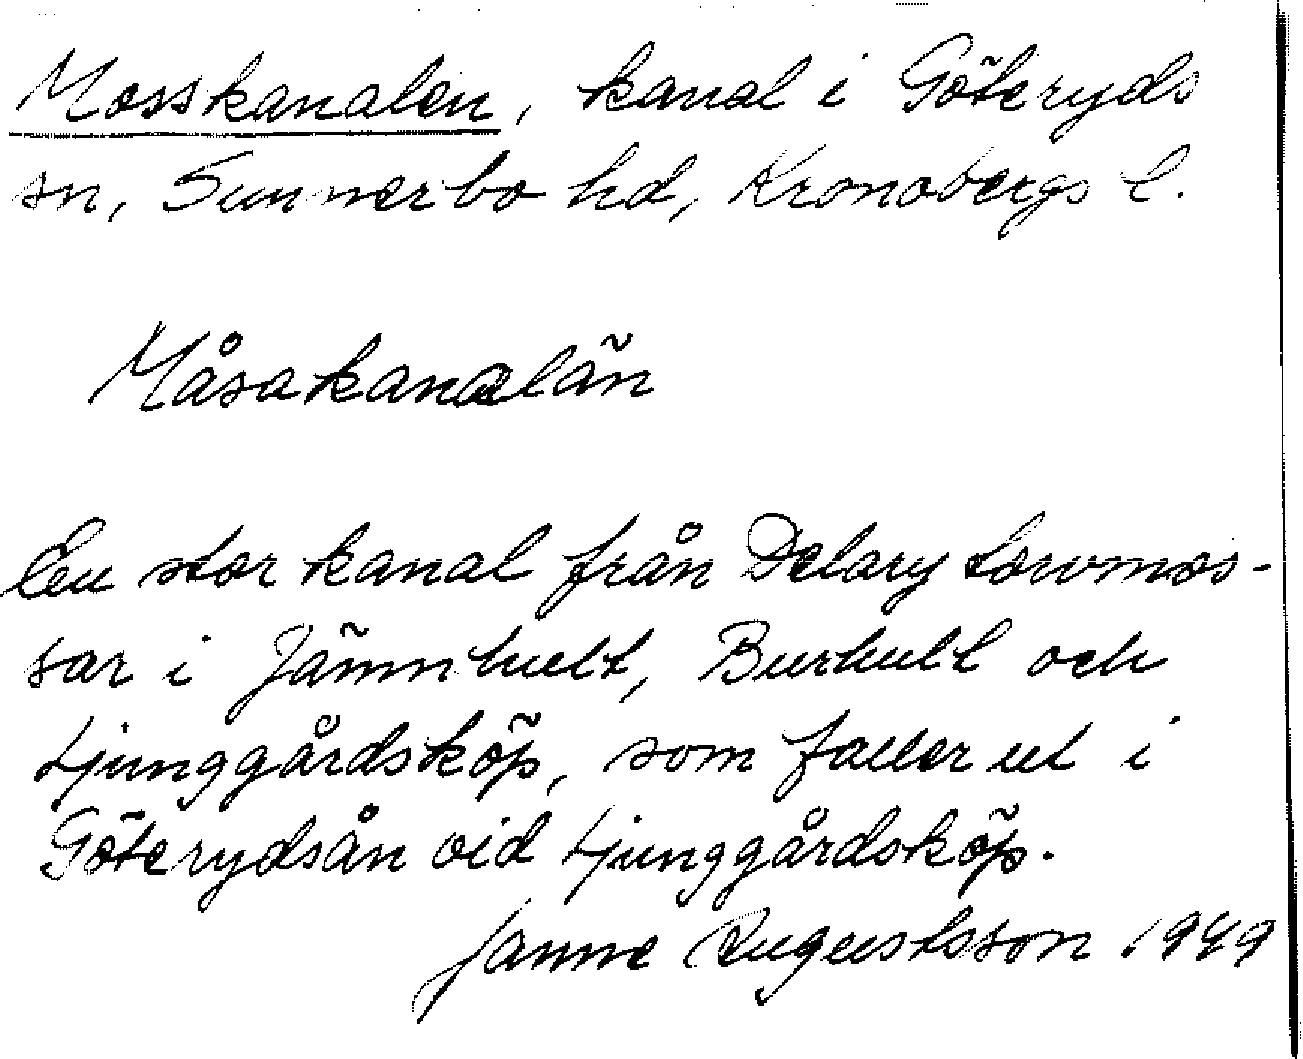 Mosskanalen, kanal i Göteryds
sn, Sunnerbo hd, Kronobergs l.
Måsakanalän
En stor kanal från Delary torvmos-
sar i Jämnhult, Burhult och
Ljunggårdsköp, som faller ut i
Göterydsån vid Ljunggårdsköp.
Janne Augustsson 1949